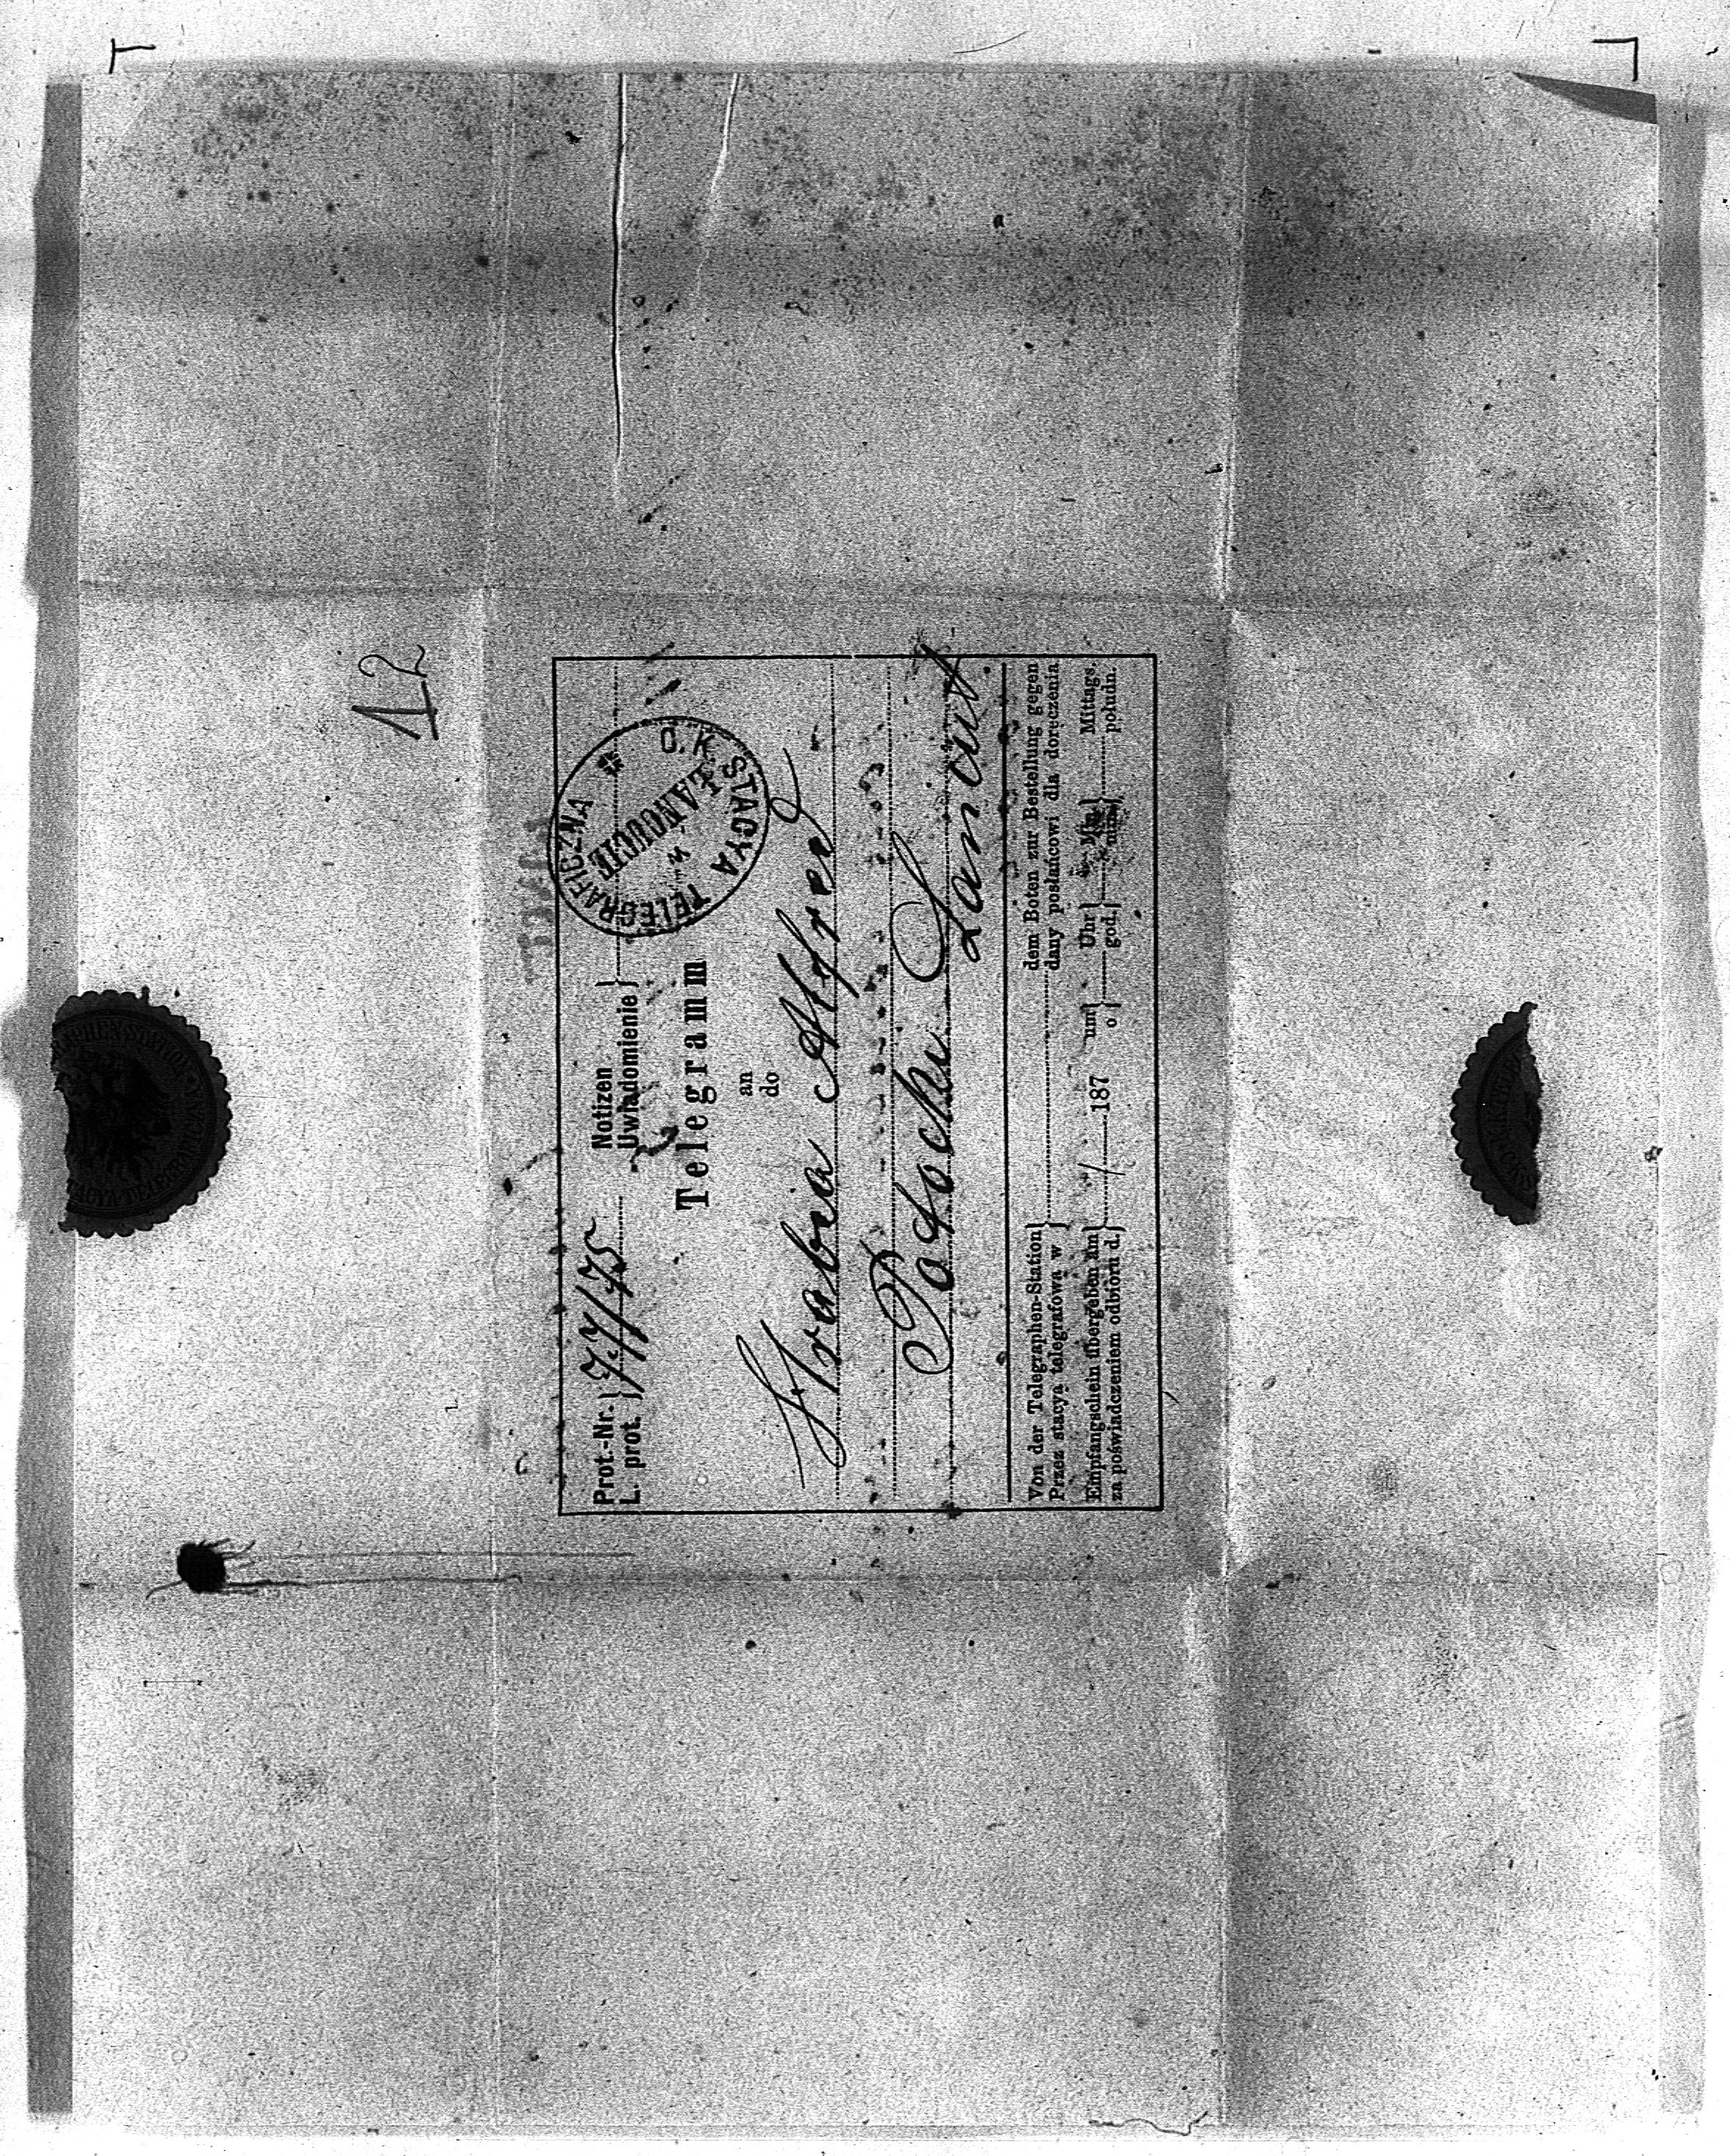 12
Prot.-Nr. } 77/75 Notizen }
L. prot. } Uwiadomienie }
C. K. STACYA TELEGRAFICZNA
W ŁAŃCUCIE
Telegramm
an
do
Hrabia Alfred
Potocki Lancut
Von der Telegraphen-Station } dem Boten zur Bestellung gegen
Przez stacyą telegrafową w } dany posłańcowi dla doręczenia
Empfangschein übergeben am } / 187 um } Uhr } Min } Mittags.
za poświadczeniem odbioru d. } o } god. } min } połudn.